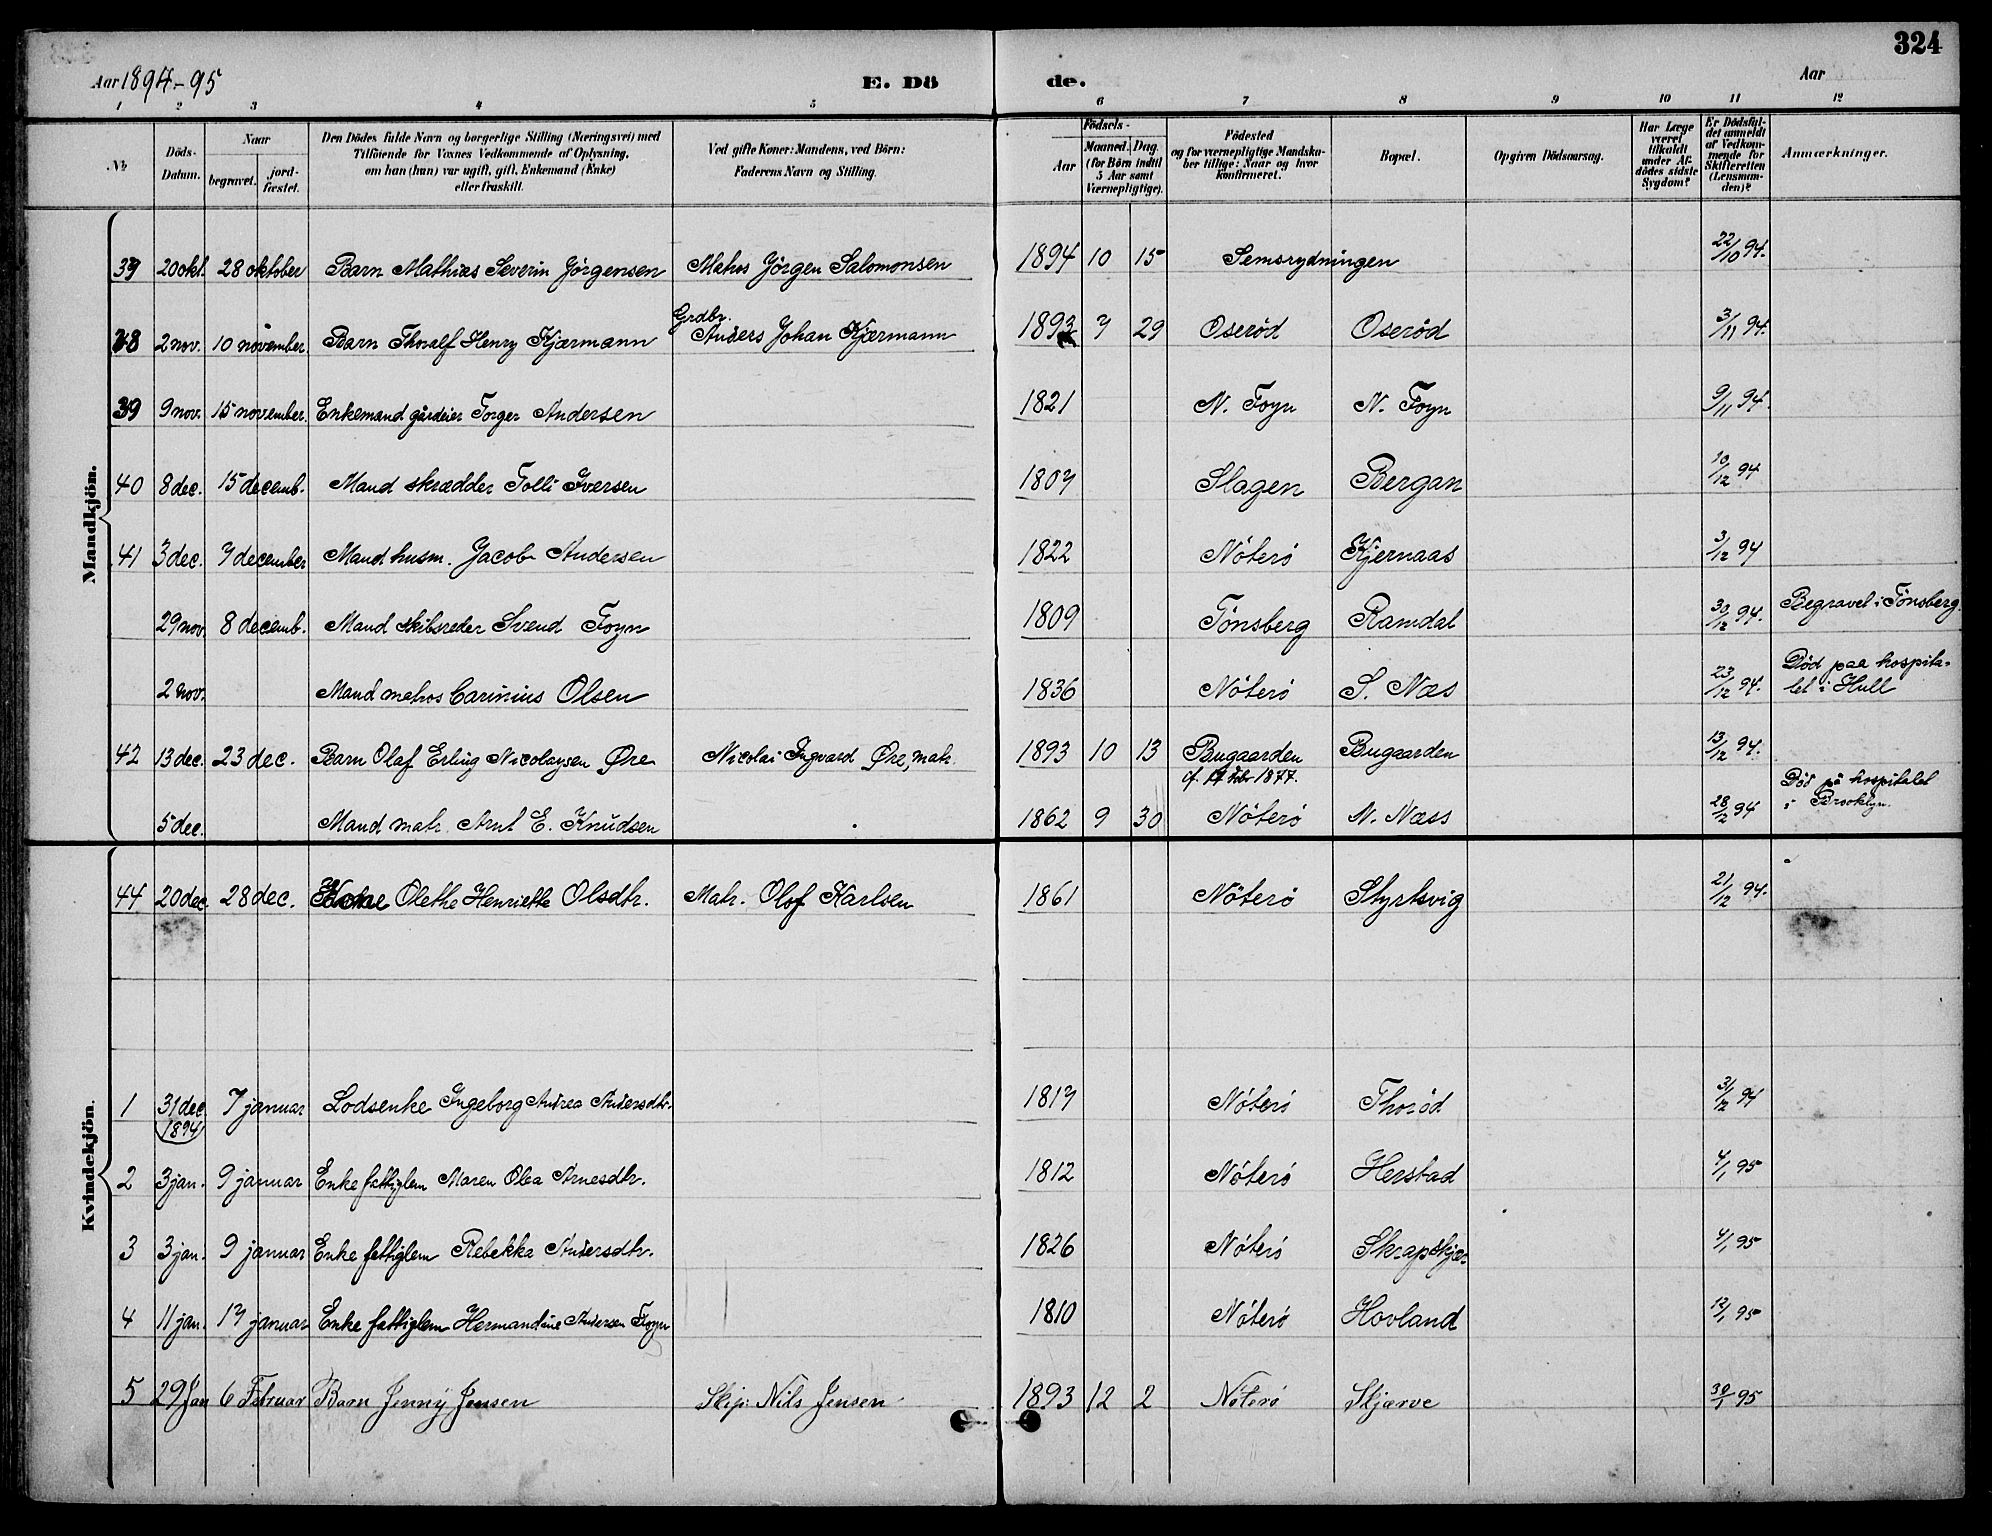 324
Aar 1894-95 E. Dö de. Aar
1 2 3 4 5 6 7 8 9 10 11 12
No. Döds-Datum. Naar begravet. jord-fæstet. Den Dödes fulde Navn og borgerlige Stilling (Næringsvei) med Tilföiende for Voxnes Vedkommende af Oplysning, om han (hun) var ugift, gift, Enkemand (Enke) eller fraskilt. Ved gifte Koner: Mandens, ved Börn: Faderens Navn og Stilling. Födsels- Aar Maaned. Dag. (for Börn indtil 5 Aar samt Værnepligtige). Födested og for værnepligtige Mandskaber tillige: Naar og hvor konfirmeret. Bopæl. Opgiven Dödsaarsag. Har Læge været tilkaldt under Afdödes sidste Sygdom? Er Dödsfaldet anmeldt af Vedkommende for Skifteretten (Lensmanden)? Anmærkninger.
Mandkjön.
39 20 okt. 28 oktober Barn Mathias Severin Jörgensen Matros Jörgen Salomonsen 1894 10 15 Semsrydningen 22/10 94.
38 2 nov. 10 november. Barn Thoralf Henry Kjærmann Grdbr. Anders Johan Kjærmann 1893 7 29 Oseröd Oseröd 3/11 94.
39 9 nov. 15 november. Enkemand gårdeier Torger Andersen 1821 N. Foyn N. Foyn 9/11 94.
40 8 dec. 15 decemb. Mand skrædder Tolli Iversen 1807 Slagen Bergan 10/12 94
41 3 dec. 7 december Mand husm. Jacob Andersen 1822 Nöterö Kjernaas 3/12 94
29 nov. 8 decemb. Mand skibsreder Svend Foyn 1809 Tönsberg Ramdal 30/12 94. Begravet i Tönsberg.
2 nov. Mand matros Carinius Olsen 1836 Nöterö S. Næs 23/12 94. Död paa hospitalet i Hull
42 13 dec. 23 dec. Barn Olaf Erling Nicolaysen Øre Nicolai Ingvard Øre, matr. 1893 10 13 Bugaarden Bugaarden 13/12 94.
5 dec. Mand matr. Arnt E. Knudsen 1862 9 30 Nöterö N. Næss 28/2 94 Död på hospitalet i Brooklyn.
Kvindekjön.
44 20 dec. 28 dec. Kone Olethe Henriette Olsdtr. Matr. Olof Karlsen 1861 Nöterö Styrtsvig 21/12 94.
1 31 dec 1894 7 januar Lodsenke Ingeborg Andrea Andersdtr. 1817 Nöterö Thoröd 31/12 94
2 3 jan. 9 januar Enke fattiglem Maren Olea Arnesdtr. 1812 Nöterö Herstad 4/1 95
3 3 jan. 9 januar Enke fattiglem Rebekka Andersdtr. 1826 Nöterö Skrapskjær 4/1 95
4 11 jan. 17 januar Enke fattiglem Hermandine Andersen Foyn 1810 Nöterö Hovland 12/1 95
5 29 Jan 6 Februar Barn Jenny Jensen Skip. Nils Jensen 1893 12 2 Nöterö Skjærve 30/1 95